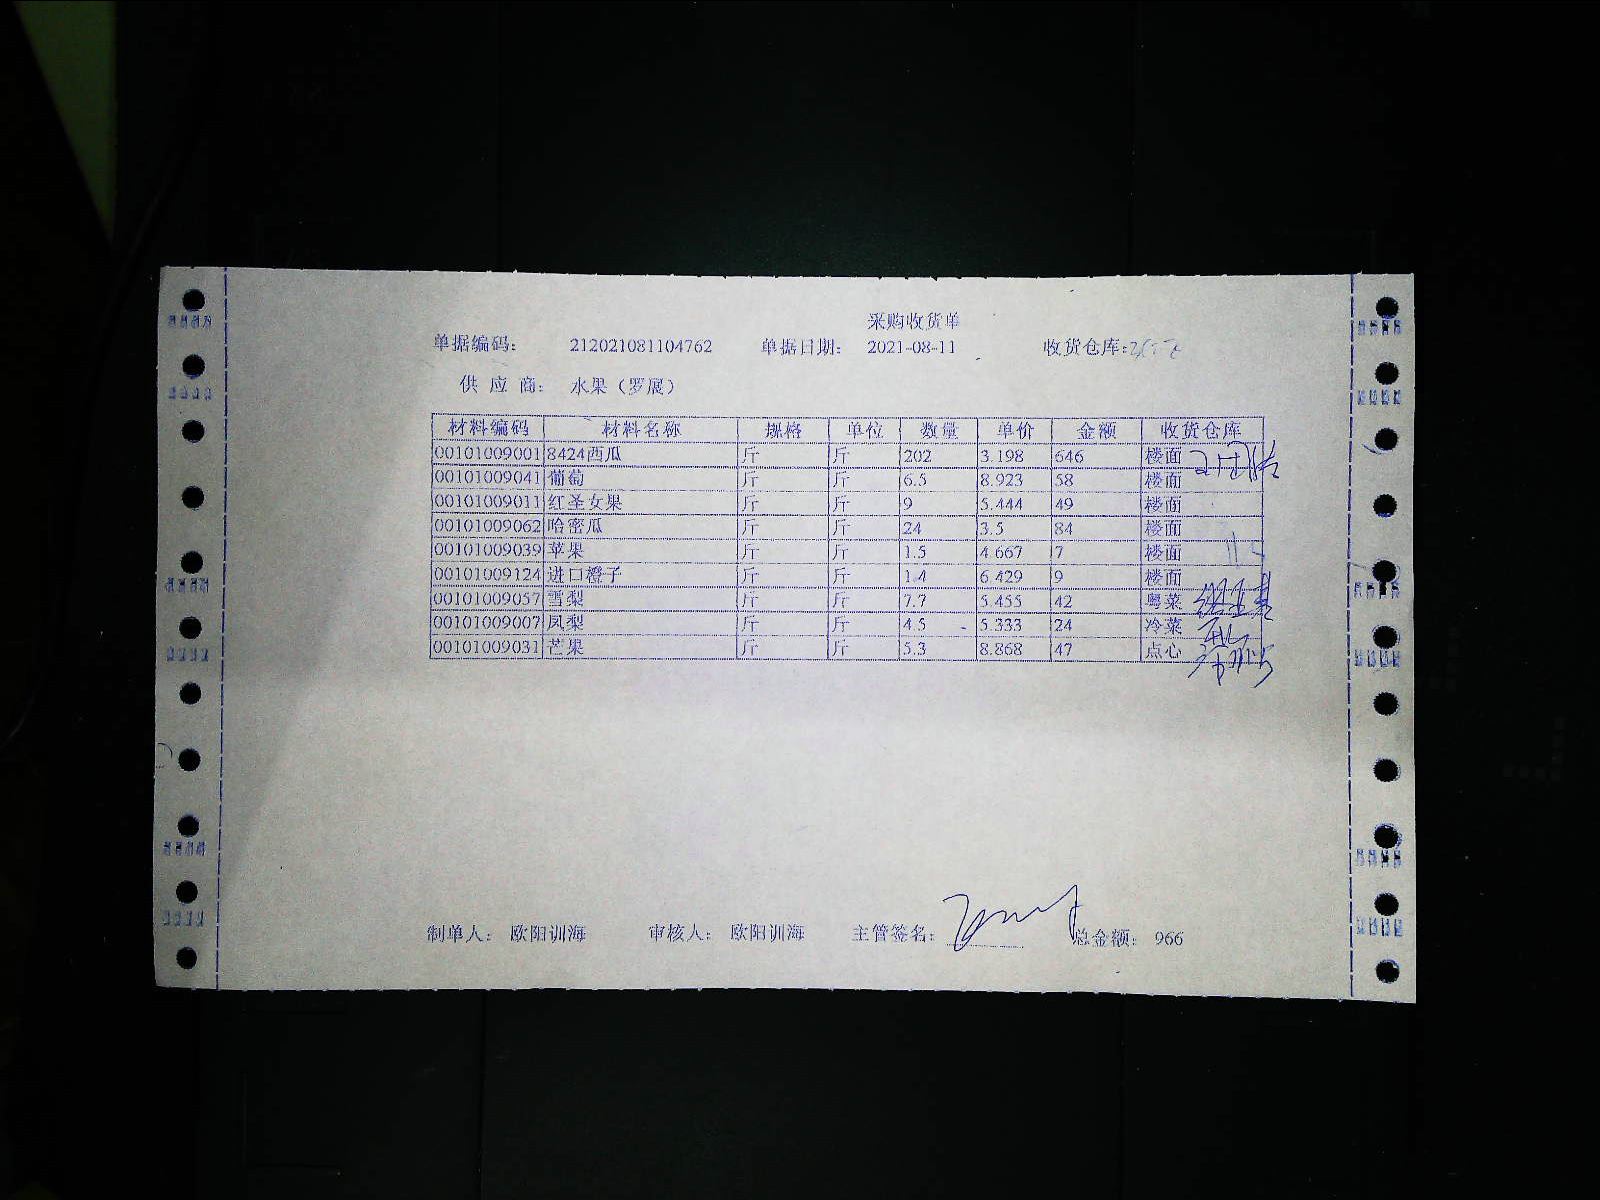 采购收货单
单据编码： 212021081104762 单据日期： 2021-08-11 收货仓库：
供 应 商： 水果（罗展）
材料编码 材料名称 规格 单位 数量 单价 金额 收货仓库
00101009001 8424西瓜 斤 斤 202 3.198 646 楼面
00101009041 葡萄 斤 斤 6.5 8.923 58 楼面
00101009011 红圣女果 斤 斤 9 5.444 49 楼面
00101009062 哈密瓜 斤 斤 24 3.5 84 楼面
00101009039 苹果 斤 斤 1.5 4.667 7 楼面
00101009124 进口橙子 斤 斤 1.4 6.429 9 楼面
00101009057 雪梨 斤 斤 7.7 5.455 42 粤菜
00101009007 凤梨 斤 斤 4.5 5.333 24 冷菜
00101009031 芒果 斤 斤 5.3 8.868 47 点心
制单人： 欧阳训海 审核人： 欧阳训海 主管签名： 总金额： 966